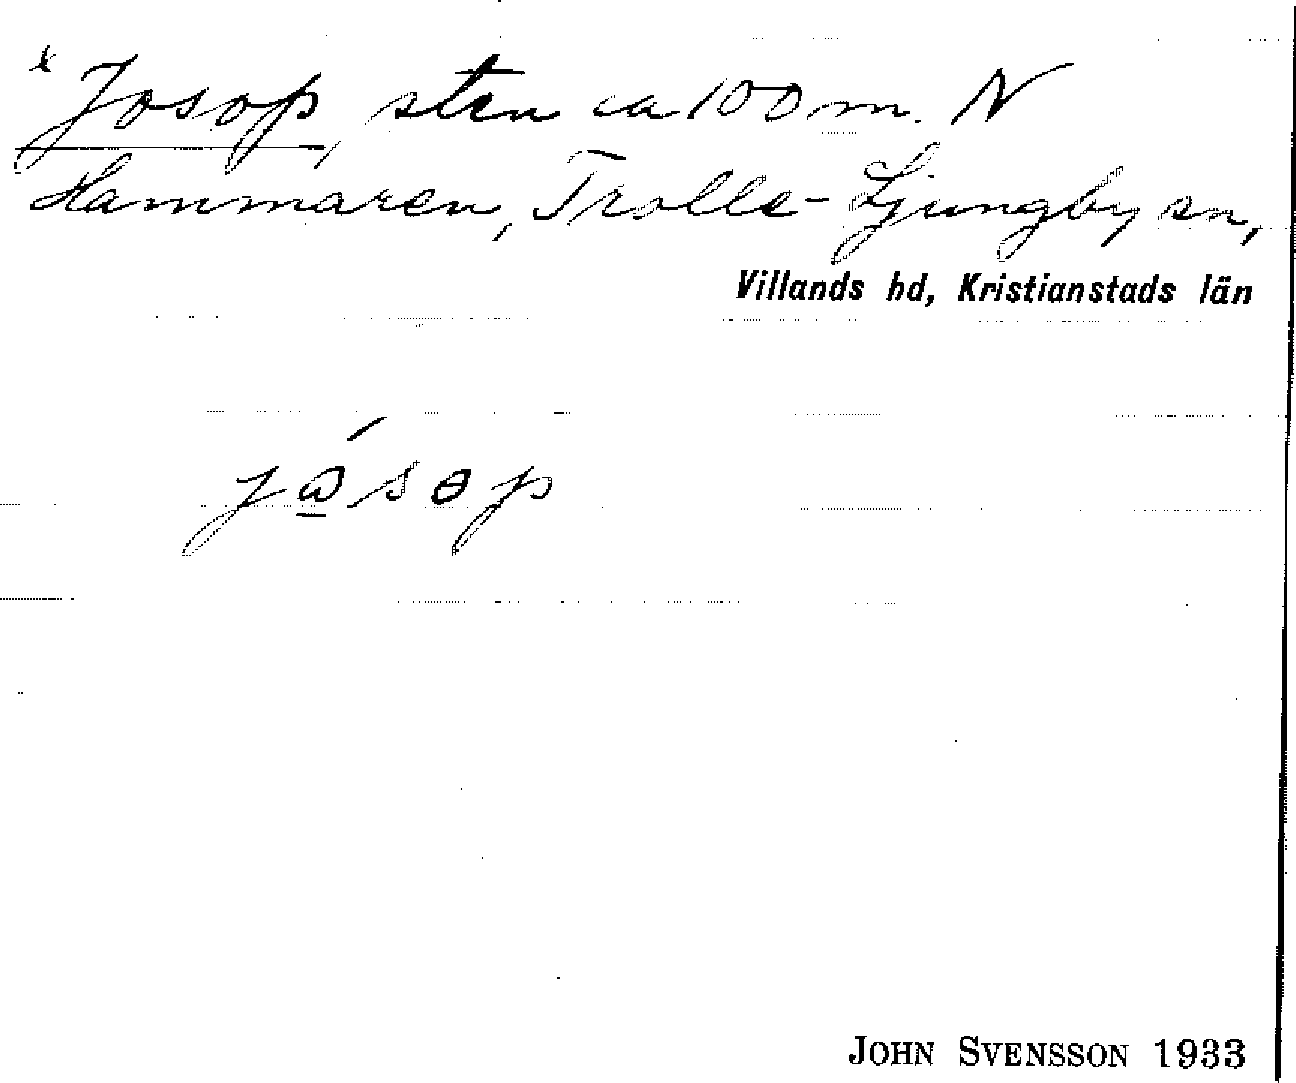 x Josop, sten ca 100 m. N
Hammaren, Trolle-Ljungby sn,
Villands hd, Kristianstads län
jώ̱səp
JOHN SVENSSON 1933